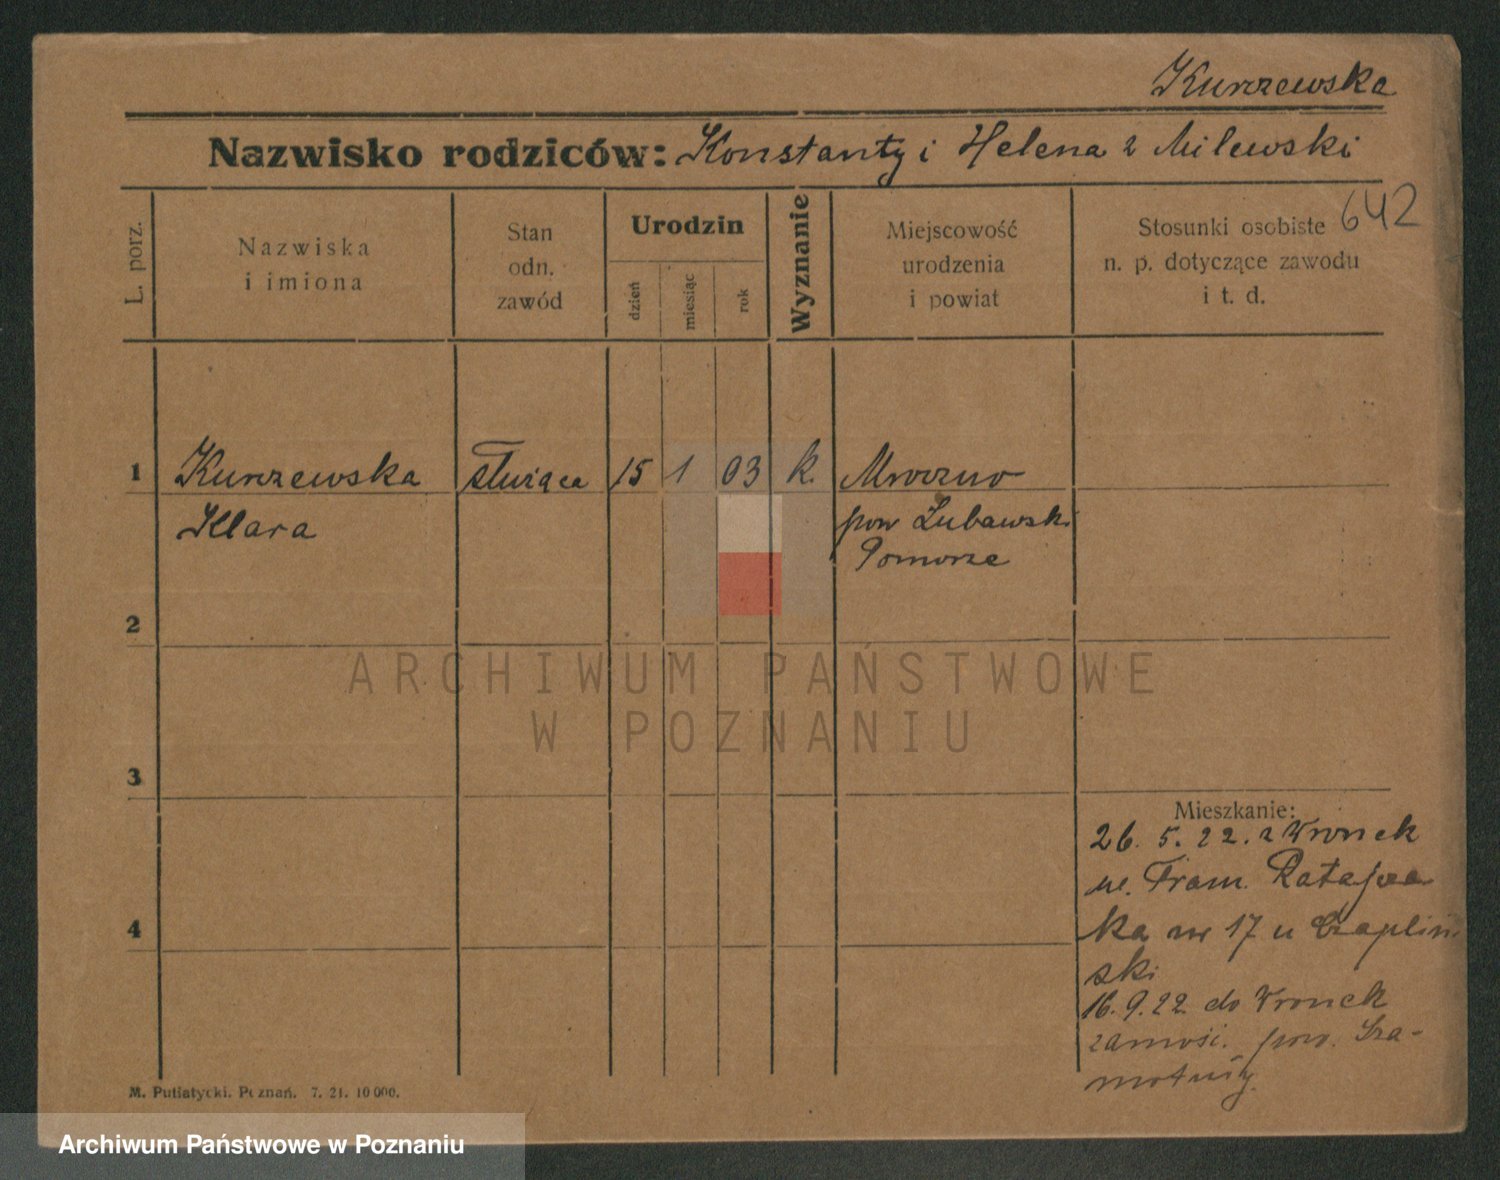 Kurzewska
Nazwisko rodziców: Konstanty i Helena z Milewski
642
L. porz.
Nazwiska
i imiona
Stan
odn.
zawód
Urodzin
dzień
miesiąc
rok
Wyznanie
Miejscowość
urodzenia
i powiat
Stosunki osobiste
n. p. dotyczące zawodu
i t. d.
1 Kurzewska służąca 15 1 03 k. Mroczno
Klara pow Lubawski
Pomorze
2
ARCHIWUM PAŃSTWOWE
W POZNANIU
3
Mieszkanie:
26. 5. 22. z Wronek
ul. Fran. Ratajcza
4
ka nr 17 u Czapliń
ski
16. 9. 22. do Wronek
zamość. pow. Sza-
motuły.
M. Putiatycki. Poznań. 7. 21. 10 000.
Archiwum Państwowe w Poznaniu